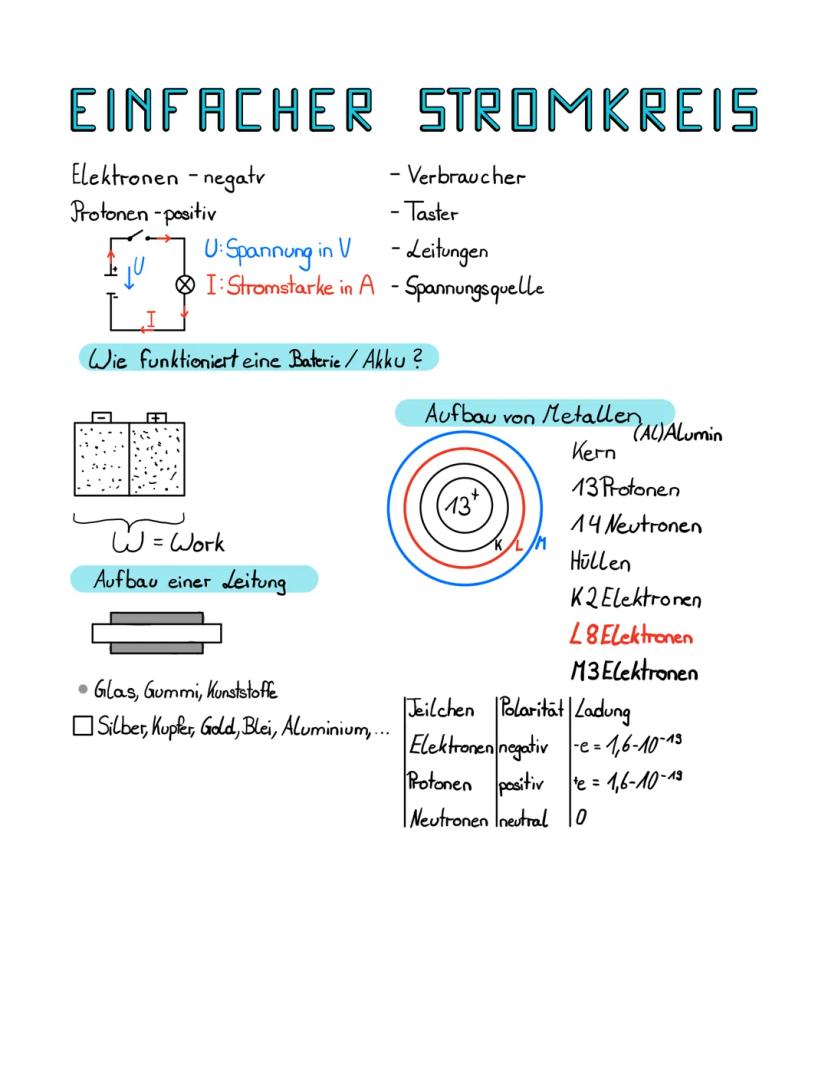 EINFACHER STROMKREIS
Elektronen - negatv
Protonen - positiv
- Verbraucher
- Taster
- Leitungen
- Spannungsquelle
+
-
U
I
U: Spannung in V
I: Stromstarke in A
Wie funktioniert eine Baterie / Akku?
- +
W = Work
Aufbau einer Leitung
Glas, Gummi, Kunststoffe
Silber, Kupfer, Gold, Blei, Aluminium, ...
Aufbau von Metallen
(Al) Alumin
13+
K L M
Kern
13 Protonen
14 Neutronen
Hüllen
K 2 Elektronen
L 8 Elektronen
M 3 Elektronen
Teilchen Polarität Ladung
Elektronen negativ -e = 1,6-10⁻¹⁹
Protonen positiv +e = 1,6-10⁻¹⁹
Neutronen neutral 0